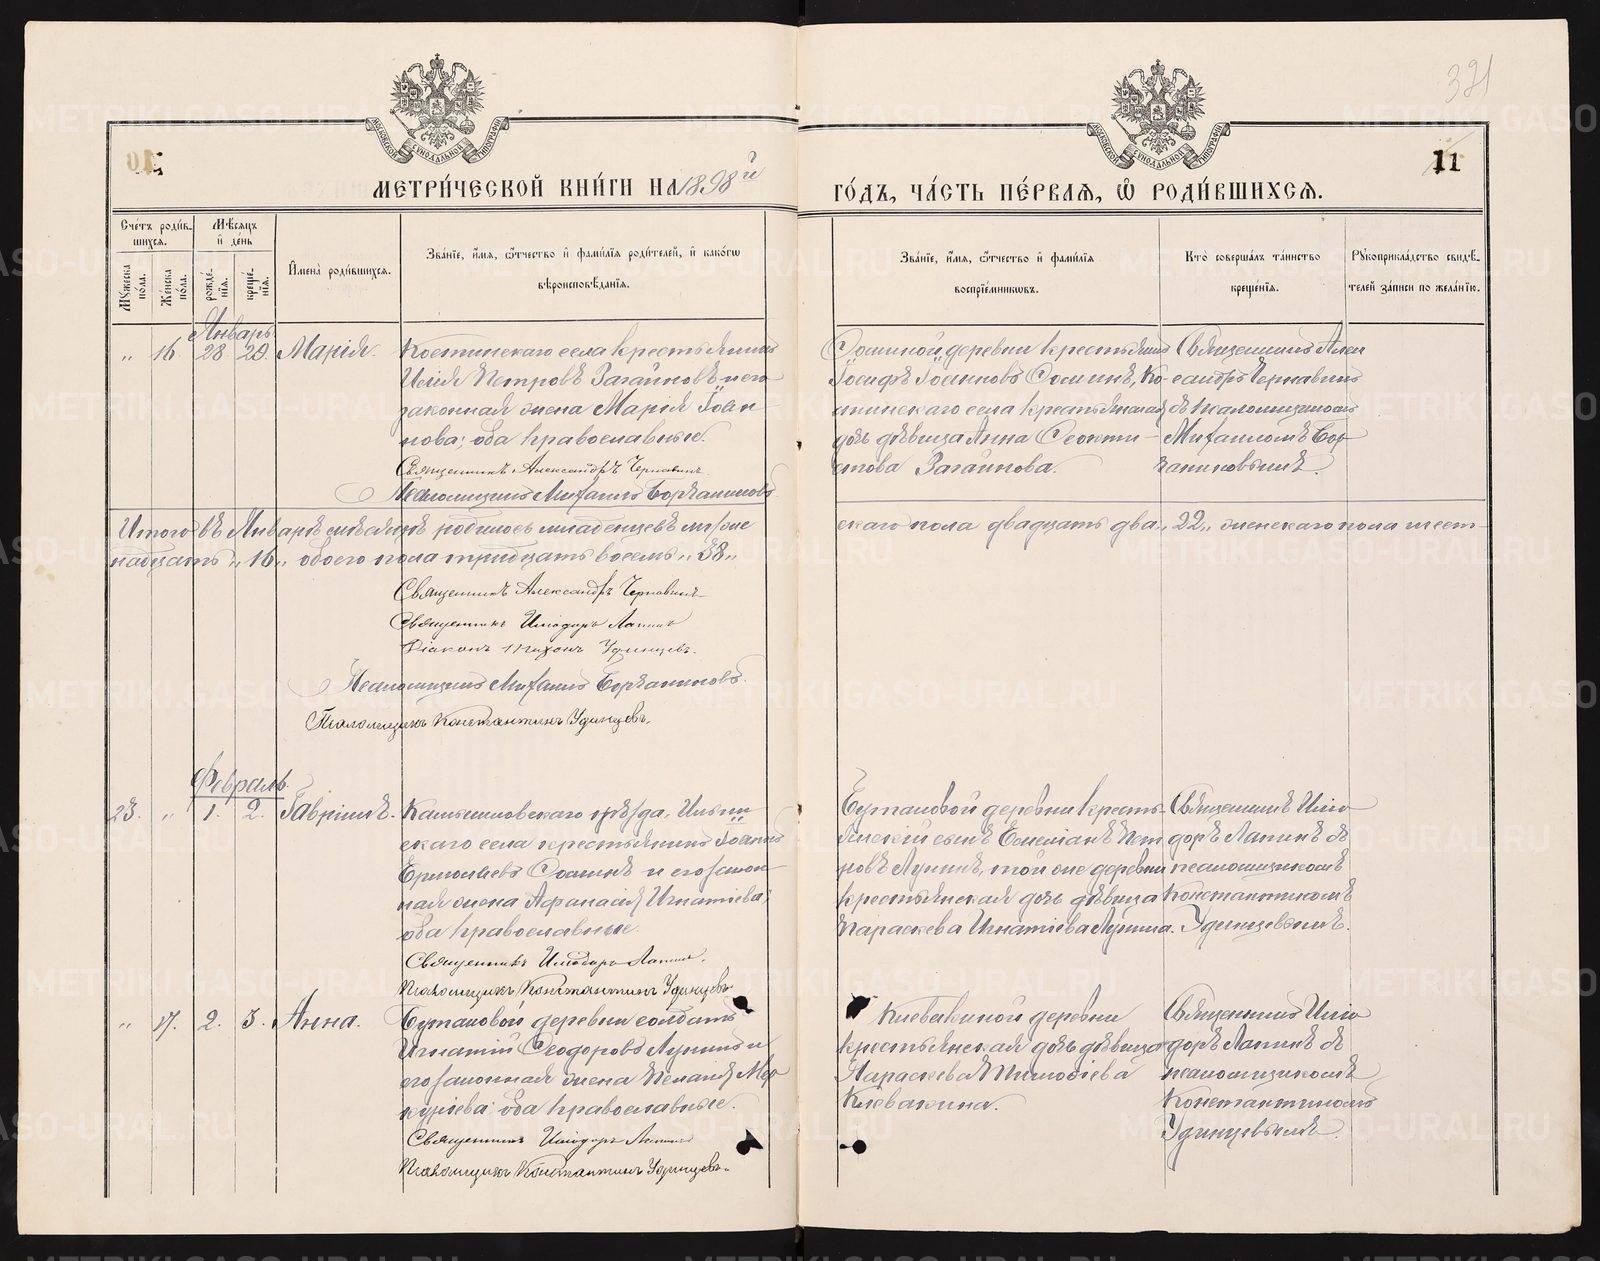 321
МОСКОВСКОЙ СѴНОДАЛЬНОЙ ТИПОГРАФІИ
МОСКОВСКОЙ СѴНОДАЛЬНОЙ ТИПОГРАФІИ
11
МЕТРИ́ЧЕСКОЙ КНИ́ГИ НА 1898й
ГО́ДЪ, ЧА́СТЬ ПЕ́РВАѦ, Ѡ҆ РОДИ́ВШИХСѦ.
Сче́тъ роди́в-
шихсѧ.
Мѣ́сѧцъ
и҆ де́нь
Мꙋ́жеска по́ла.
Же́нска по́ла.
рожде́-нїѧ.
креще́-нїѧ.
И҆мена̀ роди́вшихсѧ.
Зва́нїе, и҆́мѧ, ѻ҆́тчество и҆ фами́лїѧ роди́телей, и҆ како́гѡ
вѣроисповѣ́данїѧ.
Зва́нїе, и҆́мѧ, ѻ҆́тчество и҆ фами́лїѧ
воспрїе́мникѡвъ.
Кто̀ соверша́лъ та́инство
креще́нїѧ.
Рꙋкоприкла́дство свидѣ́-
телей за́писи по жела́нїю.
Январь
„ 16. 28 29 Марія.
Костинскаго села крестьянинъ
Илія Петровъ Загайновъ и его
законная жена Марія Іоан-
нова; оба православные.
Священникъ Александръ Чернавинъ
Псаломщикъ Михаилъ Борчаниновъ
Соминой деревни крестьянинъ
Іосифъ Іоанновъ Соминъ, Ко-
стинскаго села крестьянская
дочь дѣвица Анна Ѳеокти-
стова Загайнова.
Священникъ Алек-
сандръ Чернавинъ
съ псаломщикомъ
Михаиломъ Бор-
чаниновымъ.
Итого въ Январѣ мѣсяцѣ родилось младенцевъ муже
скаго пола двадцать два „22„ женскаго пола шест-
надцать „16„ обоего пола тридцать восемь „38„
Священникъ Александръ Чернавинъ
Священникъ Иліодоръ Лапинъ
Діаконъ Тихонъ Удинцевъ.
Псаломщикъ Михаилъ Борчаниновъ.
Псаломщикъ Константинъ Удинцевъ.
Февраль.
23. „ 1. 2. Гавріилъ.
Камышловскаго уѣзда,
скаго села крестьянинъ Іоаннъ
Ермолаевъ Соминъ и его закон-
ная жена Афанасія Игнатіева;
оба православные.
Священникъ Иліодоръ Лапинъ.
Псаломщикъ Константинъ Удинцевъ
Бутановой деревни кресть-
янскій сынъ Емеліанъ Пет
ровъ Лунинъ, той же деревни
крестьянская дочь дѣвица
Параскева Игнатіева Лунина.
Священникъ Иліо-
доръ Лапинъ съ
псаломщикомъ
Константиномъ
Удинцевымъ.
„ 17. 2. 3. Анна.
Бутановой деревни солдатъ
Игнатій Ѳеодоровъ Лунинъ и
его законная жена Пелагія Мер
куріева; оба православные.
Священникъ Иліодоръ Лапинъ
Псаломщикъ Константинъ Удинцевъ.
Клевакиной деревни
крестьянская дочь дѣвица
Параскева Тимофіева
Клевакина.
Священникъ Иліо
доръ Лапинъ съ
псаломщикомъ
Константиномъ
Удинцевымъ.